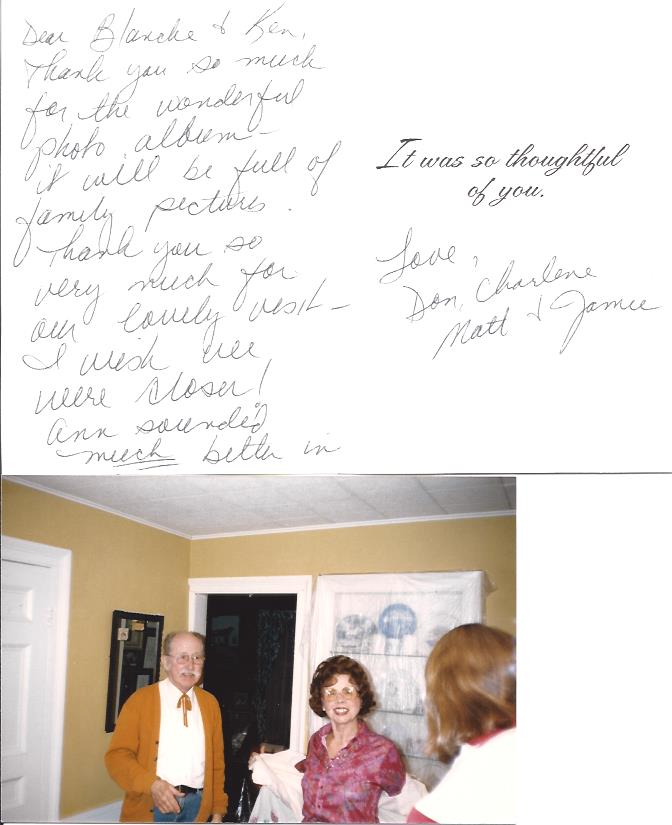 Dear Blanche & Ken,
Thank you so much
for the wonderful
photo album -
it will be full of
family pictures.
Thank you so
very much for
our lovely visit -
I wish we
were closer!
Ann sounded
much better in
It was so thoughtful
of you.
Love,
Don, Charlene
Matt & Jamie